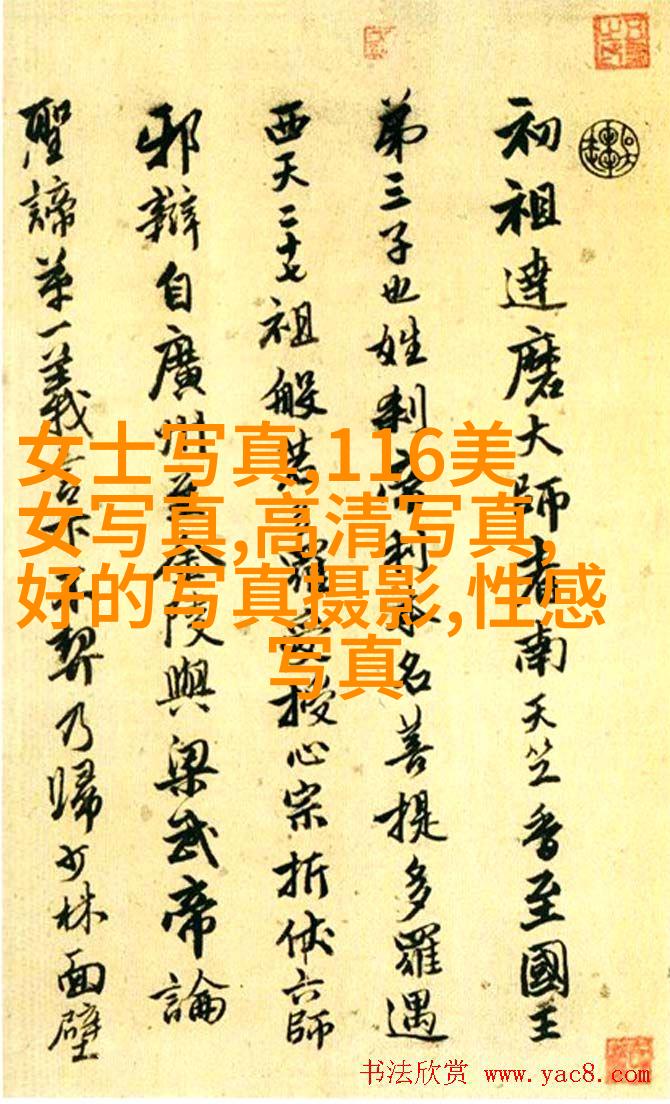 初祖達磨大師者南天竺香至國王
第三子也姓刹帝利本名菩提多羅遇
西天二十七祖般若多羅受授心宗折伏六師
邪辯自廣州至金陵與梁武帝論
聖諦第一義言下不契乃歸少林面壁
女士写真,116美
女写真,高清写真,
好的写真摄影,性感
写真
书法欣赏 www.yac8.com